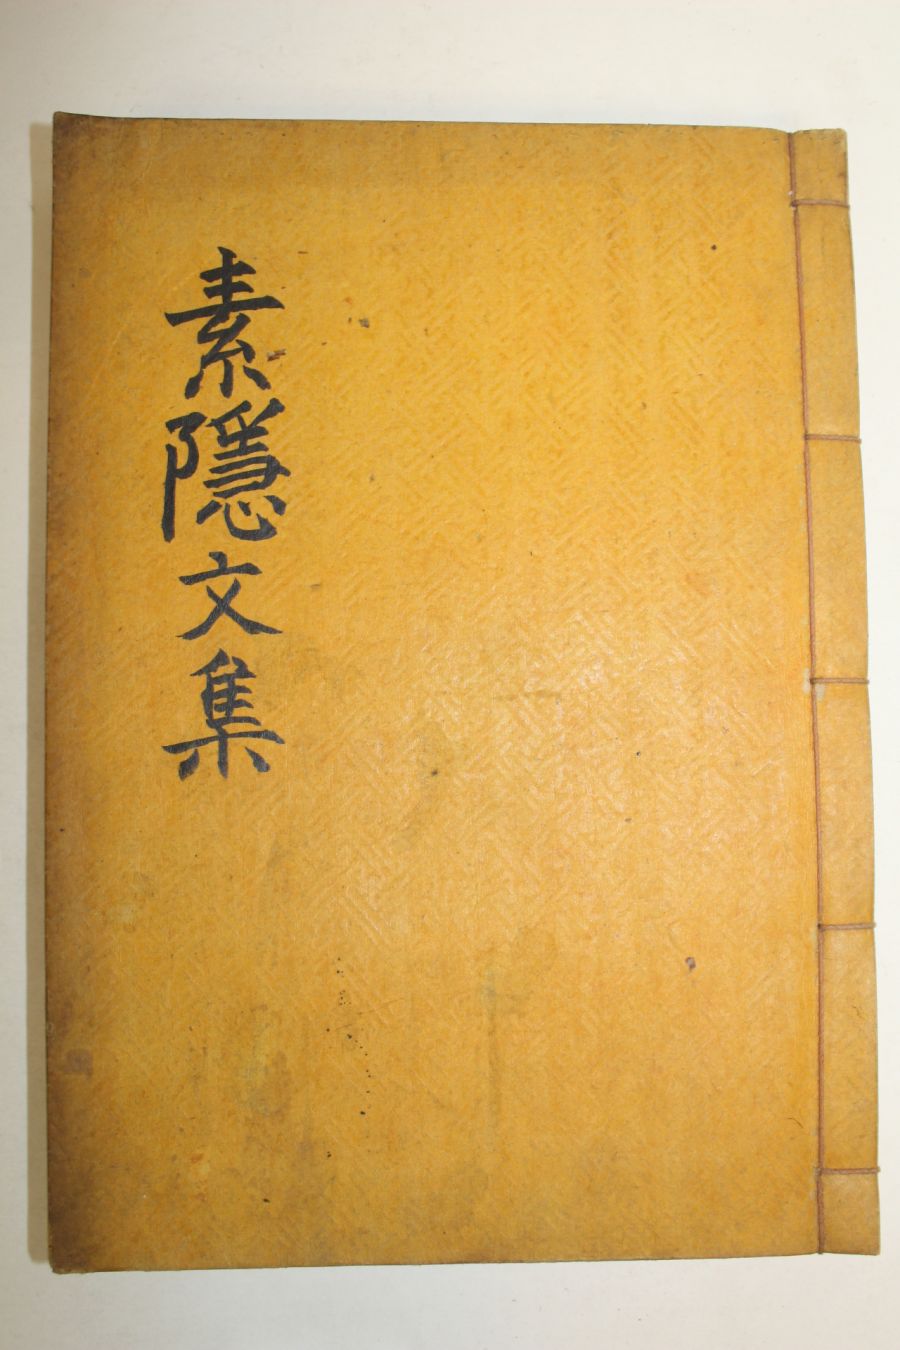 素隱文集